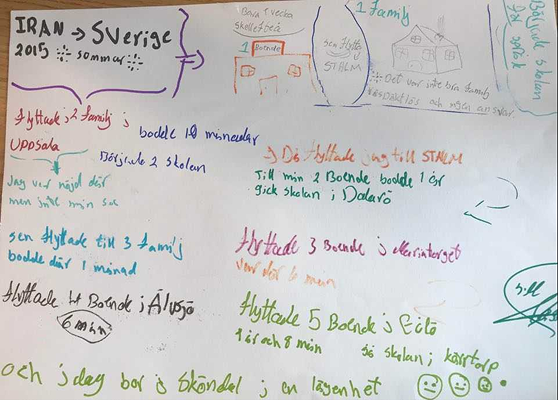 IRAN → Sverige
2015 sommar
Bara 1 vecka
skellefteå
1 Boende
sen flytta
STHLM
1 Familj
Det var inte bra familj
Började skolan
för språk
flyttade 2 familj i
Uppsala
bodde 10 månader
Började 2 skolan
Jag var nöjd där
men inte min
Då flyttade jag till STHLM
Till min 2 Boende bodde 1 år
gick skolan i Dadarö
sen flyttade till 3 familj
bodde där 1 månad
flyttade 3 Boende i
var där 6 mån
flyttade 4 Boende i Älvsjö
6 mån
flyttade 5 Boende i
1 år och 8 mån
skolan i kärrtorp
och idag bor i Sköndal i en lägenhet